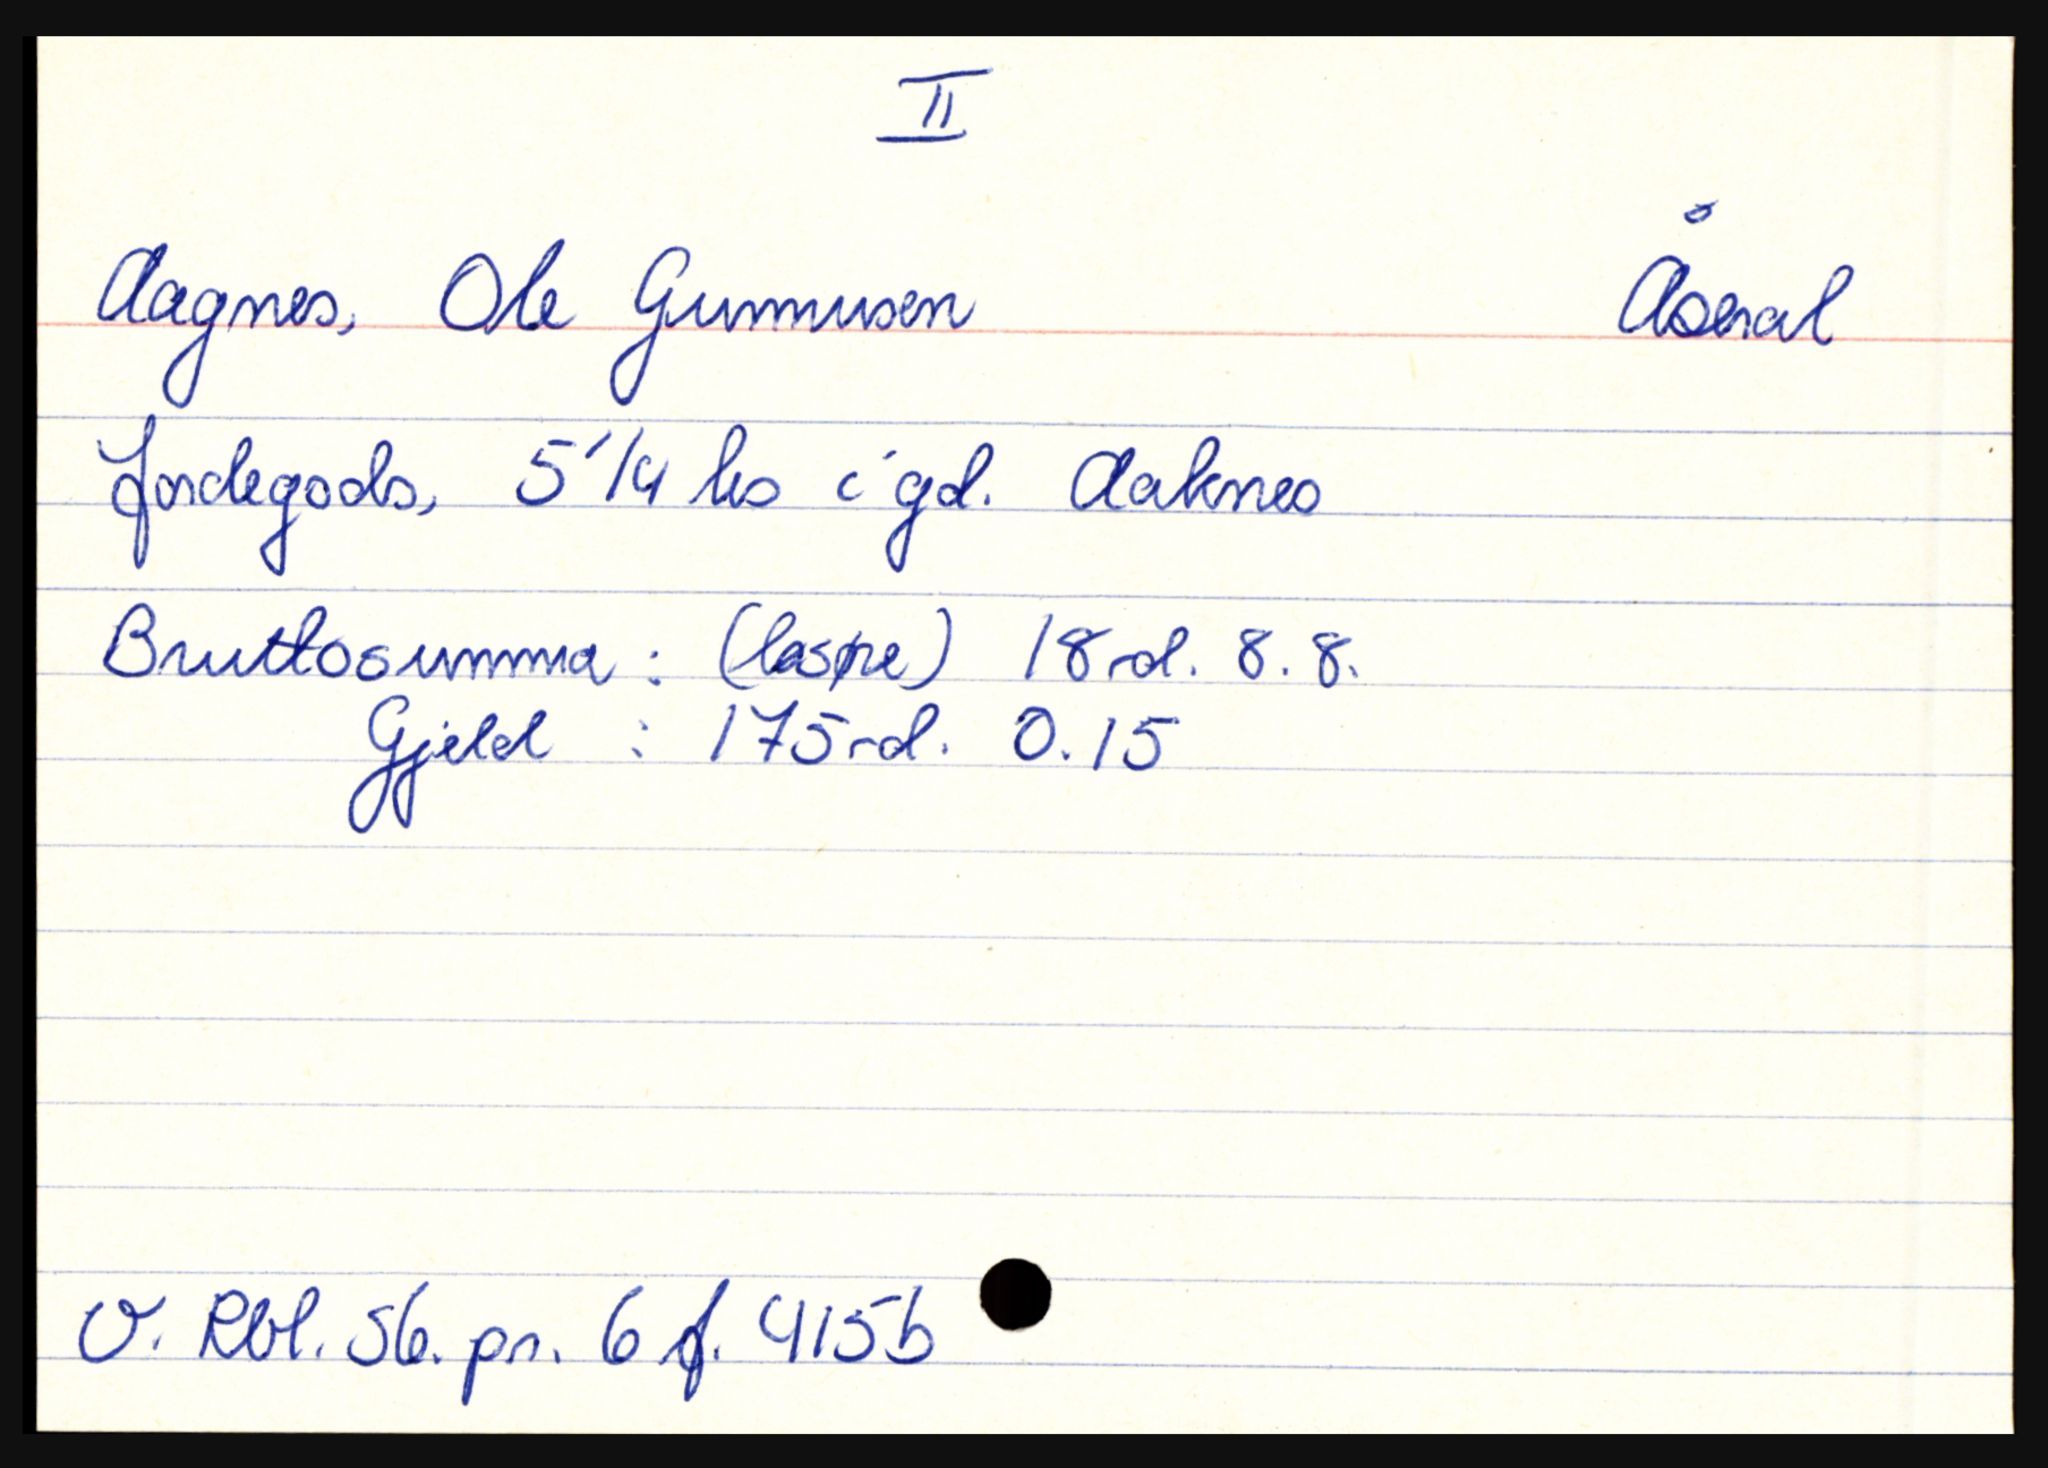 II
Aagnes, Ole Gunnusen Åseral
Jordegods, 5 1/4 hs i gd. Aaknes
Bruttosumma: (løspe) 18 rd. 8. 8.
Gjeld : 175 rd. 0. 15
V. Rbl. sb. pr. 6 f. 415b